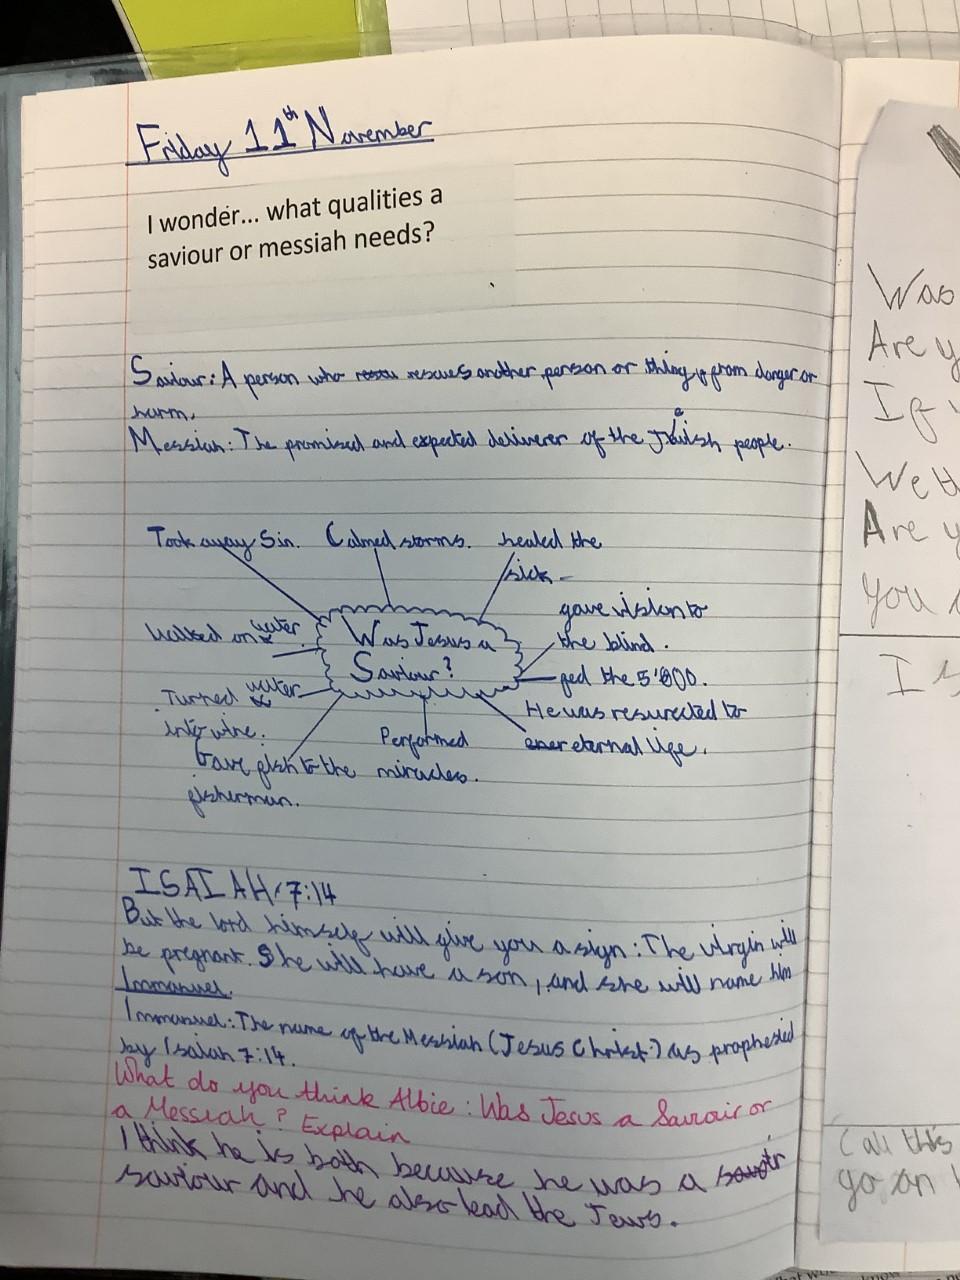 Friday 11th November
I wonder... what qualities a
saviour or messiah needs?
Saviour: A person who rescues another person or thing from danger or
harm.
Messiah: The promised and expected deliverer of the Jewish people.
Took away Sin. Calmed storms. healed the
sick.
gave vision to
the blind.
Walked on water.
Was Jesus a
Saviour?
fed the 5'000.
Turned water
into wine.
He was resurected to
eternal life.
Performed
miracles.
Gave fish to the
fisherman.
ISAIAH 7:14
But the lord himself will give you a sign: The virgin will
be pregnant. She will have a son, and she will name him
Immanuel.
Immanuel: The name of the Messiah (Jesus Christ) as prophesied
by Isaiah 7:14.
What do you think Albie: Was Jesus a Saviour or
a Messiah? Explain
I think he is both because he was a
saviour and he also lead the Jews.
Was
Are y
If
We
Are y
You
I
Call this
go on